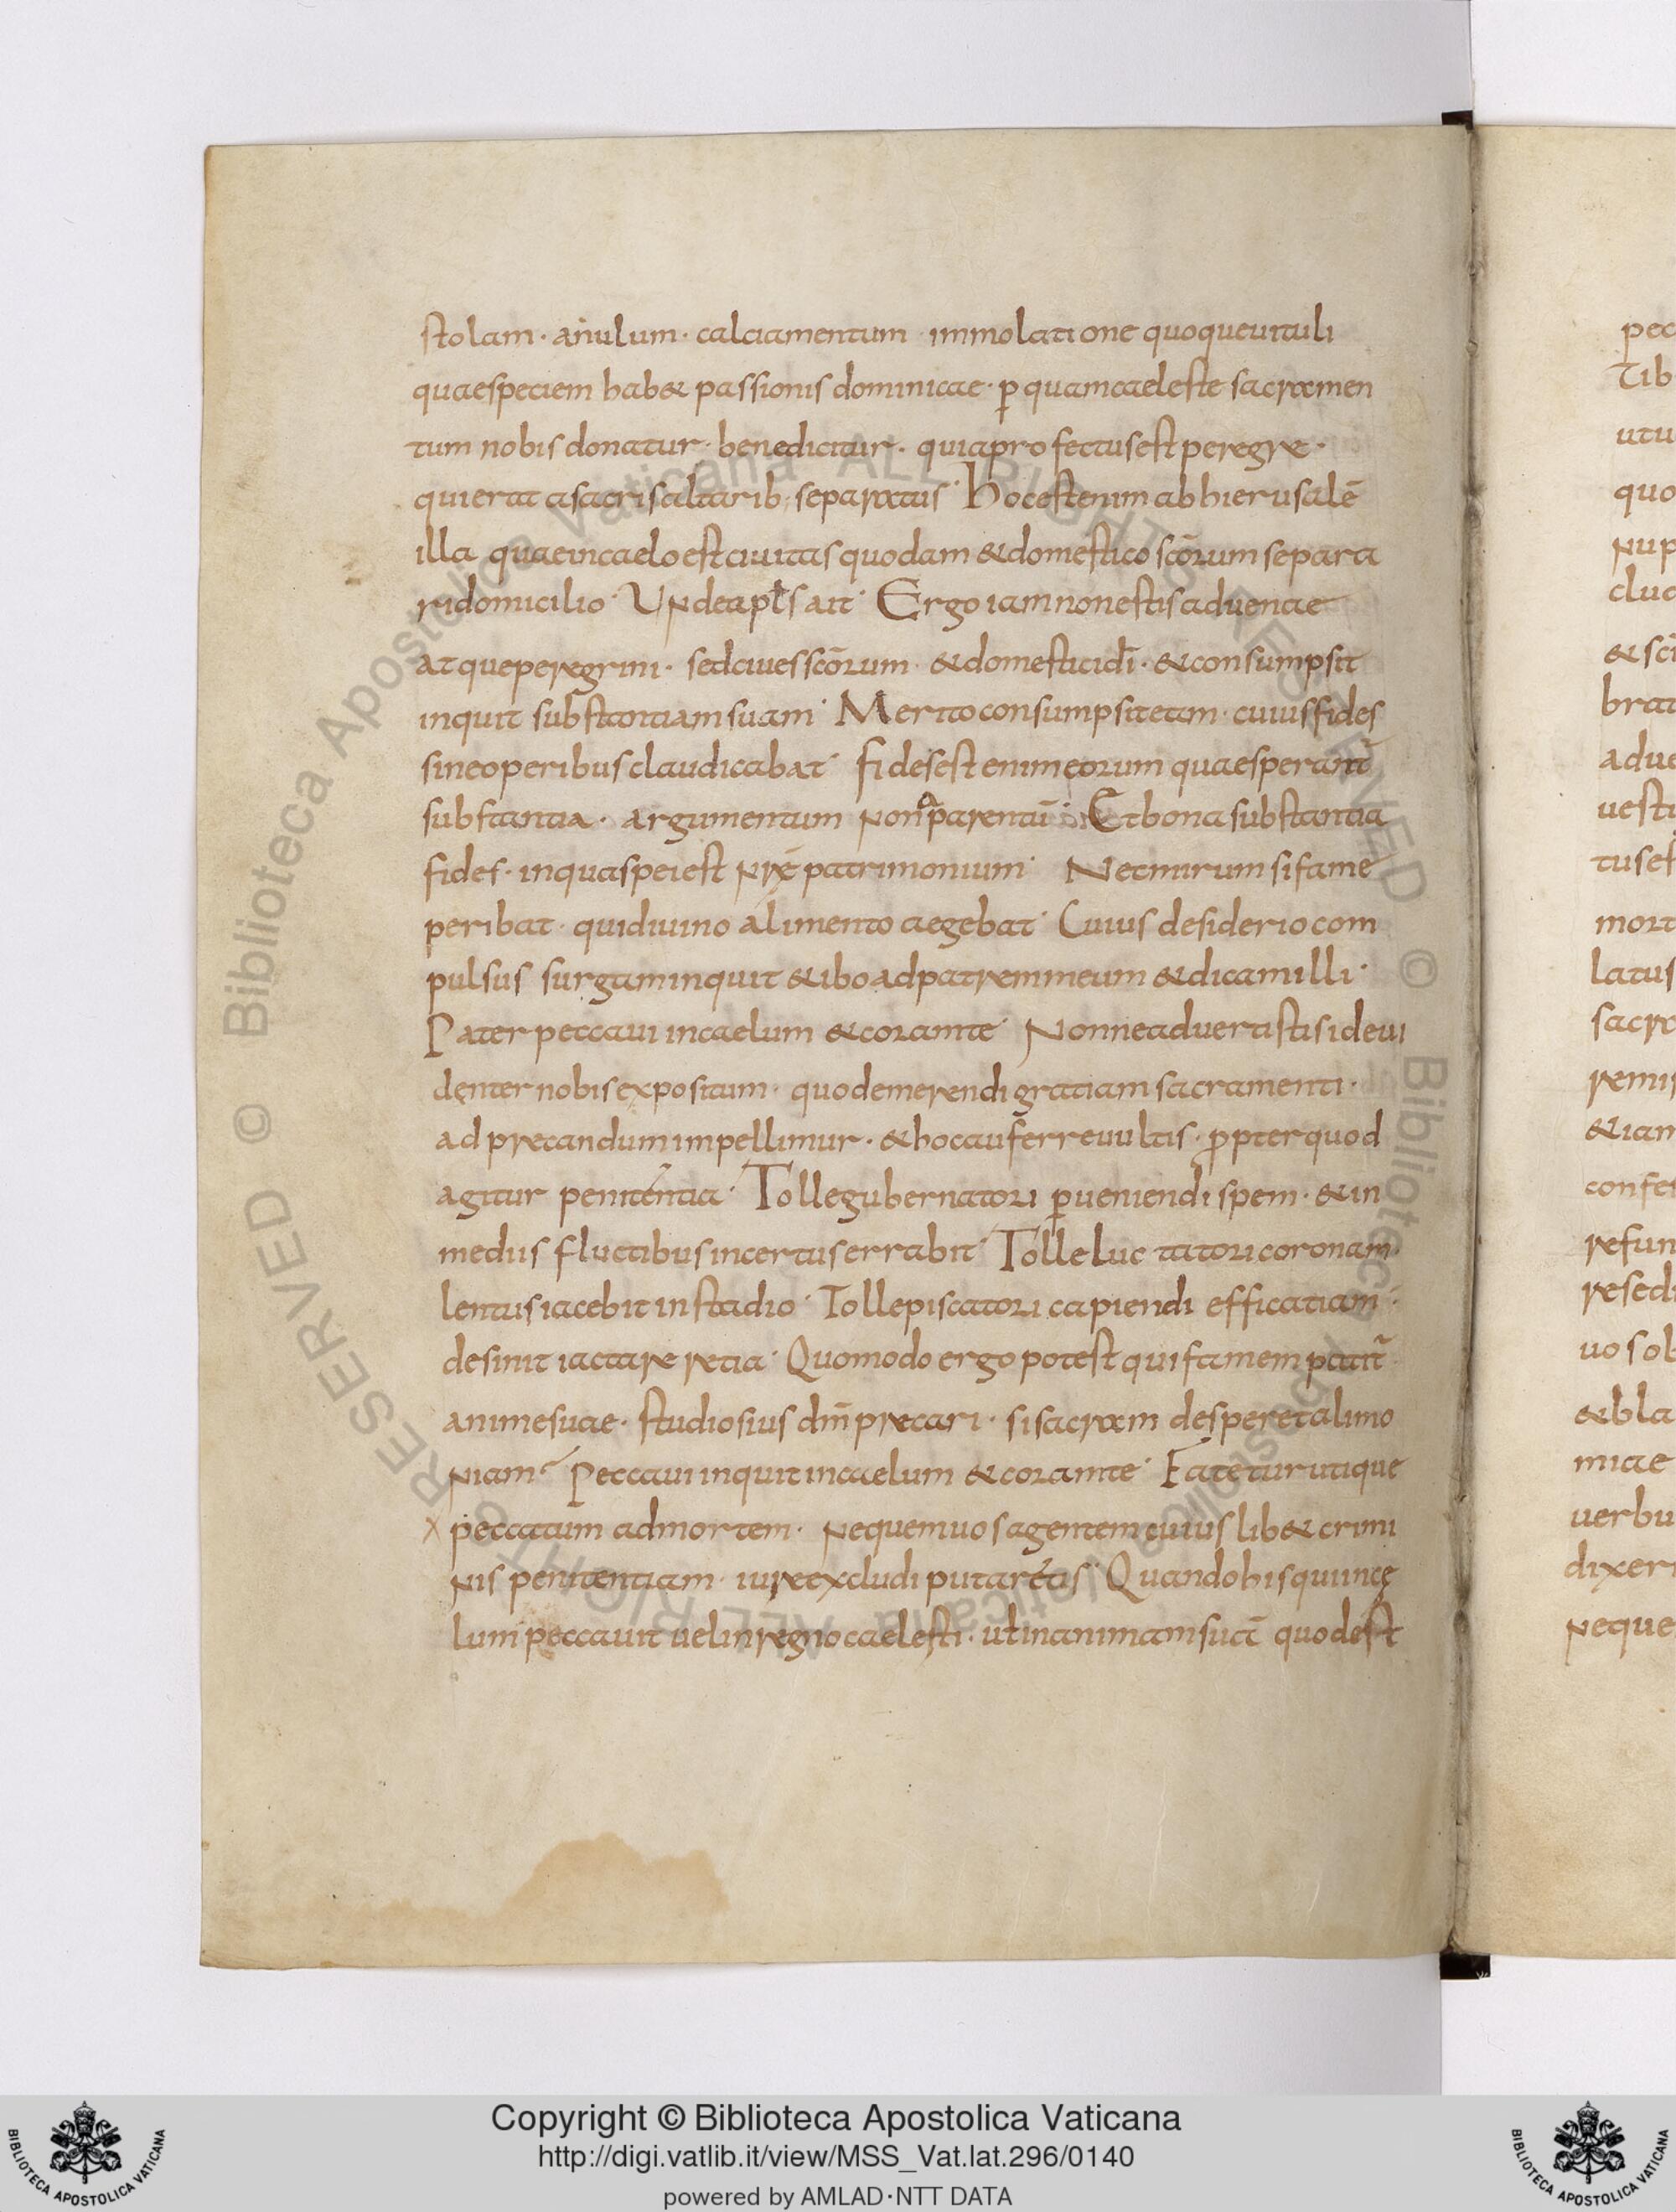 stolam · anulum · calciamentum · immolatione quoque uituli
quae speciem hab& passionis dominicae · ꝑ quam caeleste sacramen
tum nobis donatur · benedicitur · quia profectus est peregre ·
qui erat a sacris altarib; separatus · Hoc est enim ab hierusalē
illa quae in caelo est ciuitas quodam & domestico scōrum separa
ri domicilio · Unde apłs ait · Ergo iam non estis aduenae
atque peregrini · sed ciues scōrum · & domestici dī · & consumpsit
inquit substantiam suam · Merito consumpsit etam · cuius fides
sine operibus claudicabat · fides est enim eorum quae sperant̄
substantia · argumentum non apparentū · Et bona substantia
fides · in qua spei est nr̄ę patrimonium · Nec mirum si fame
peribat · qui diuino alimento aegebat · Cuius desiderio com
pulsus surgam inquit & ibo ad patrem meum & dicam illi ·
Pater peccaui in caelum & coram te · Nonne aduertistis id eui
denter nobis expositum · quod emerendi gratiam sacramenti ·
ad precandum impellimur · & hoc auferre uultis · ꝓpter quod
agitur penitentia · Tolle gubernatori ꝑueniendi spem · & in
mediis fluctibus incertus errabit · Tolle luctatori coronam ·
lentus iacebit in stadio · Tolle piscatori capiendi efficatiam ·
desinit iactare retia · Quomodo ergo potest qui famem patit̄
anime suae · studiosius dm̄ precari · si sacram desperet alimo
niam · Peccaui inquit in caelum & coram te · Fatetur utique
x peccatum ad mortem · neque uos agentem cuius lib& crimi
nis penitentiam · iure excludi putaretis · Quando his qui in cę
lum peccauit uel in regno caelesti · ut in animam suā quod est
pec
Tib
utu
quo
nup
clud
& sci
brat
adue
uesti
tu sef
mort
latus
sacra
remis
& iam
confes
refun
resedi
uo sob
& bla
miae
uerbu
dixeri
neque
Copyright © Biblioteca Apostolica Vaticana
http://digi.vatlib.it/view/MSS_Vat.lat.296/0140
powered by AMLAD·NTT DATA
BIBLIOTECA APOSTOLICA VATICANA
BIBLIOTECA APOSTOLICA VATICANA
© Biblioteca Apostolica Vaticana ALL RIGHTS RESERVED © Biblioteca Apostolica Vaticana ALL RIGHTS RESERVED